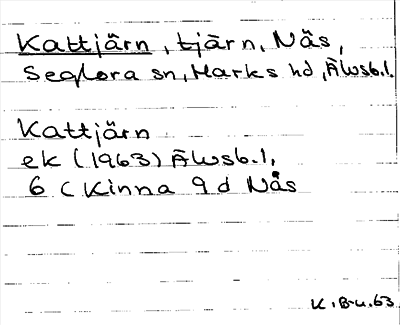 Kattjärn, tjärn, Näs,
Seglora sn, Marks hd, Älvsb.l.
Kattjärn
ek (1963) Älvsb.l,
6 C Kinna 9d Nås
K.B-u.63